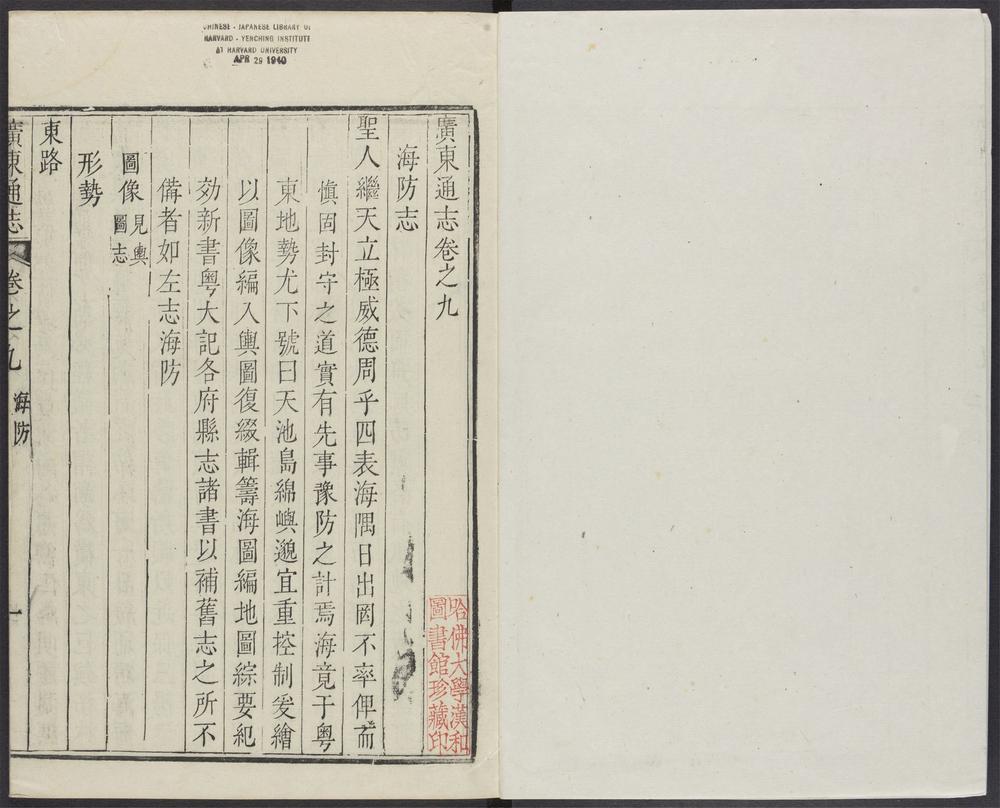 CHINESE - JAPANESE LIBRARY OF
HARVARD - YENCHING INSTITUTE
AT HARVARD UNIVERSITY
APR 29 1940
廣東通志卷之九
海防志
聖人繼天立極威德周乎四表海隅日出罔不率俾而
慎固封守之道實有先事豫防之計焉海竟于粵
東地勢尤下號曰天池島綿嶼邈宜重控制爰繪
以圖像編入輿圖復綴輯籌海圖編地圖綜要紀
効新書粵大記各府縣志諸書以補舊志之所不
備者如左志海防
圖像見輿圖志
形勢
東路
廣東通志 卷之九 海防 一
哈佛大學漢和
圖書館珍藏印